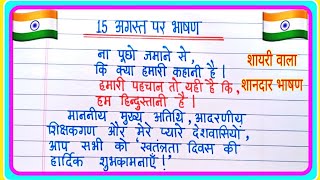 15 अगस्त पर भाषण
ना पूछो जमाने से,
कि क्या हमारी कहानी है।
हमारी पहचान तो यही है कि,
हम हिन्दुस्तानी है।
शायरी वाला
शानदार भाषण
माननीय मुख्य अतिथि, आदरणीय
शिक्षकगण और मेरे प्यारे देशवासियों,
आप सभी को 'स्वतंत्रता दिवस की
हार्दिक शुभकामनाएँ!'